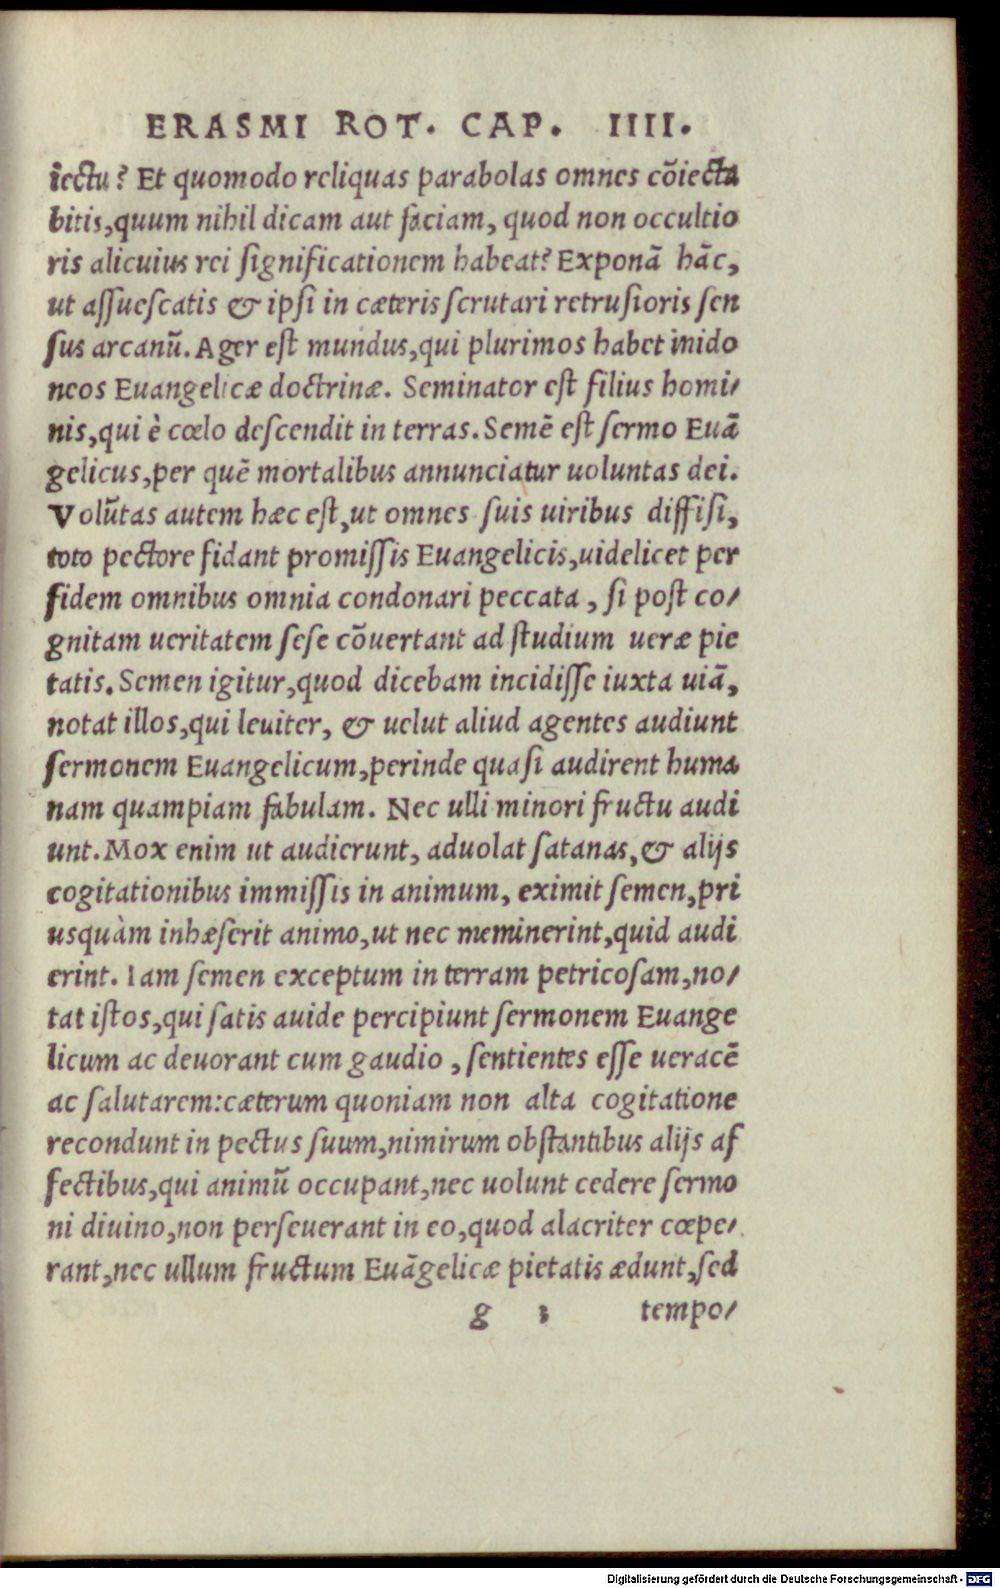 ERASMI ROT. CAP. IIII.
iectu? Et quomodo reliquas parabolas omnes cõiecta
bitis, quum nihil dicam aut faciam, quod non occultio
ris alicuius rei significationem habeat? Exponã hãc,
ut assuescatis & ipsi in cæteris scrutari retrusioris sen
sus arcanũ. Ager est mundus, qui plurimos habet inido
neos Euangelicæ doctrinæ. Seminator est filius homi/
nis, qui è cœlo descendit in terras. Semẽ est sermo Euã
gelicus, per quẽ mortalibus annunciatur uoluntas dei.
Volũtas autem hæc est, ut omnes suis uiribus diffisi,
toto pectore fidant promissis Euangelicis, uidelicet per
fidem omnibus omnia condonari peccata, si post co/
gnitam ueritatem sese cõuertant ad studium ueræ pie
tatis. Semen igitur, quod dicebam incidisse iuxta uiã,
notat illos, qui leuiter, & uelut aliud agentes audiunt
sermonem Euangelicum, perinde quasi audirent huma
nam quampiam fabulam. Nec ulli minori fructu audi
unt. Mox enim ut audierunt, aduolat satanas, & alijs
cogitationibus immissis in animum, eximit semen, pri
usquàm inhæserit animo, ut nec meminerint, quid audi
erint. Iam semen exceptum in terram petricosam, no/
tat istos, qui satis auide percipiunt sermonem Euange
licum ac deuorant cum gaudio, sentientes esse ueracẽ
ac salutarem: cæterum quoniam non alta cogitatione
recondunt in pectus suum, nimirum obstantibus alijs af
fectibus, qui animũ occupant, nec uolunt cedere sermo
ni diuino, non perseuerant in eo, quod alacriter cœpe/
rant, nec ullum fructum Euãgelicæ pietatis ædunt, sed
g 3 tempo/
Digitalisierung gefördert durch die Deutsche Forschungsgemeinschaft - DFG